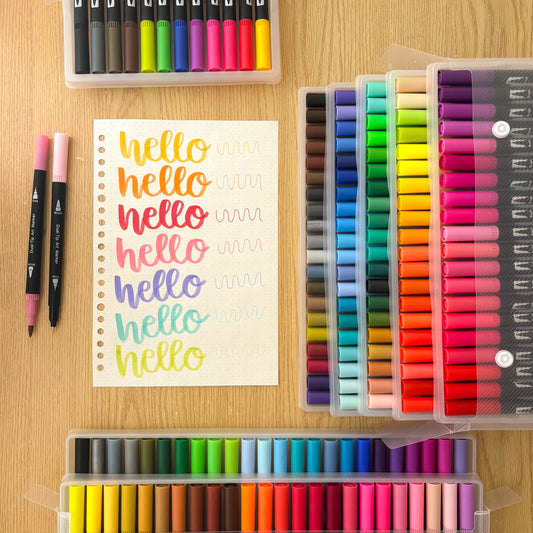 hello
hello
hello
hello
hello
hello
hello
Dual Tip Art Marker
Dual Tip Art Marker